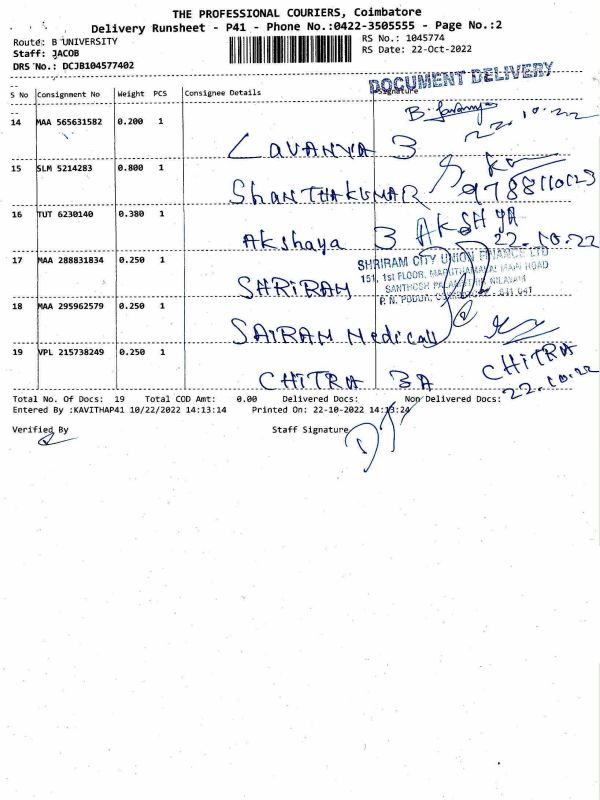 THE PROFESSIONAL COURIERS, Coimbatore
Delivery Runsheet - P41 - Phone No.:0422-3505555 - Page No.:2
Route: B UNIVERSITY
RS No.: 1045774
Staff: JACOB
RS Date: 22-Oct-2022
DRS No.: DCJB104577402
DOCUMENT DELIVERY
S No Consignment No Weight PCS Consignee Details Signature
14 MAA 565631582 0.200 1
22.10.22
LAVANYA 3
15 SLM 5214283 0.800 1
SHANTHAKUMAR 9788110123
16 TUT 6230140 0.380 1
AKSHYA
Akshaya 3 22.10.22
17 MAA 288831834 0.250 1
SHRIRAM CITY UNION FINANCE LTD
151, 1st FLOOR, MARUTHAMALAI MAIN ROAD
SHRIRAM
SANTHOSH NILAYAM
P. N. PUDUR, 641 041
18 MAA 295962579 0.250 1
SAIRAM Medicall
19 VPL 215738249 0.250 1
CHITRA
CHITRA 3A 22.10.22
Total No. Of Docs: 19 Total COD Amt: 0.00 Delivered Docs: Non Delivered Docs:
Entered By :KAVITHAP41 10/22/2022 14:13:14 Printed On: 22-10-2022 14:13:24
Verified By Staff Signature